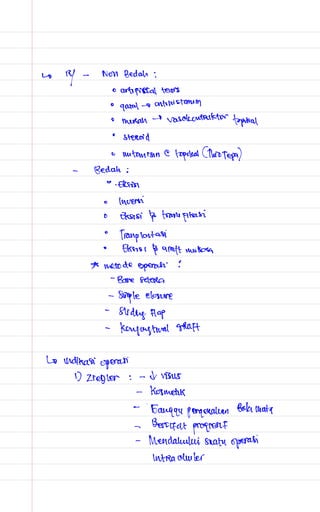 ↳ R/ - Non Bedah :
• artificial tears
• gatal → antihistamin
• merah → vasokonstruktor topikal
• steroid
• mitomisin C topikal (Thio Tepa)
- Bedah :
• Eksisi
• Inversi
• Eksisi & transposisi
• Transplantasi
• Eksisi & graft mukosa
* metode operasi :
- Bare sclera
- Simple closure
- Sliding flap
- Konjungtival graft
↳ Indikasi operasi
1) Ziegler : - ↓ visus
- Kosmetik
- Ganggu pergerakan bola mata
- Bersifat progresif
- Mendahului suatu operasi
intra okuler